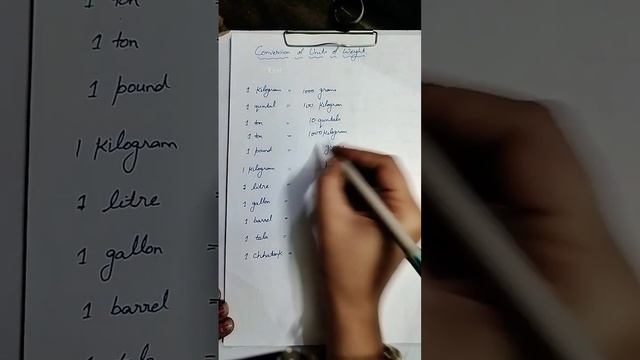 Conversion of Units of Weight
1 Kilogram = 1000 grams
1 quintal = 100 Kilogram
1 ton = 10 quintals
1 ton = 1000 Kilogram
1 pound =
1 Kilogram =
1 litre =
1 gallon =
1 barrel =
1 tola =
1 Chhatank =
1 ton
1 pound
1 Kilogram
1 litre
1 gallon =
1 barrel =